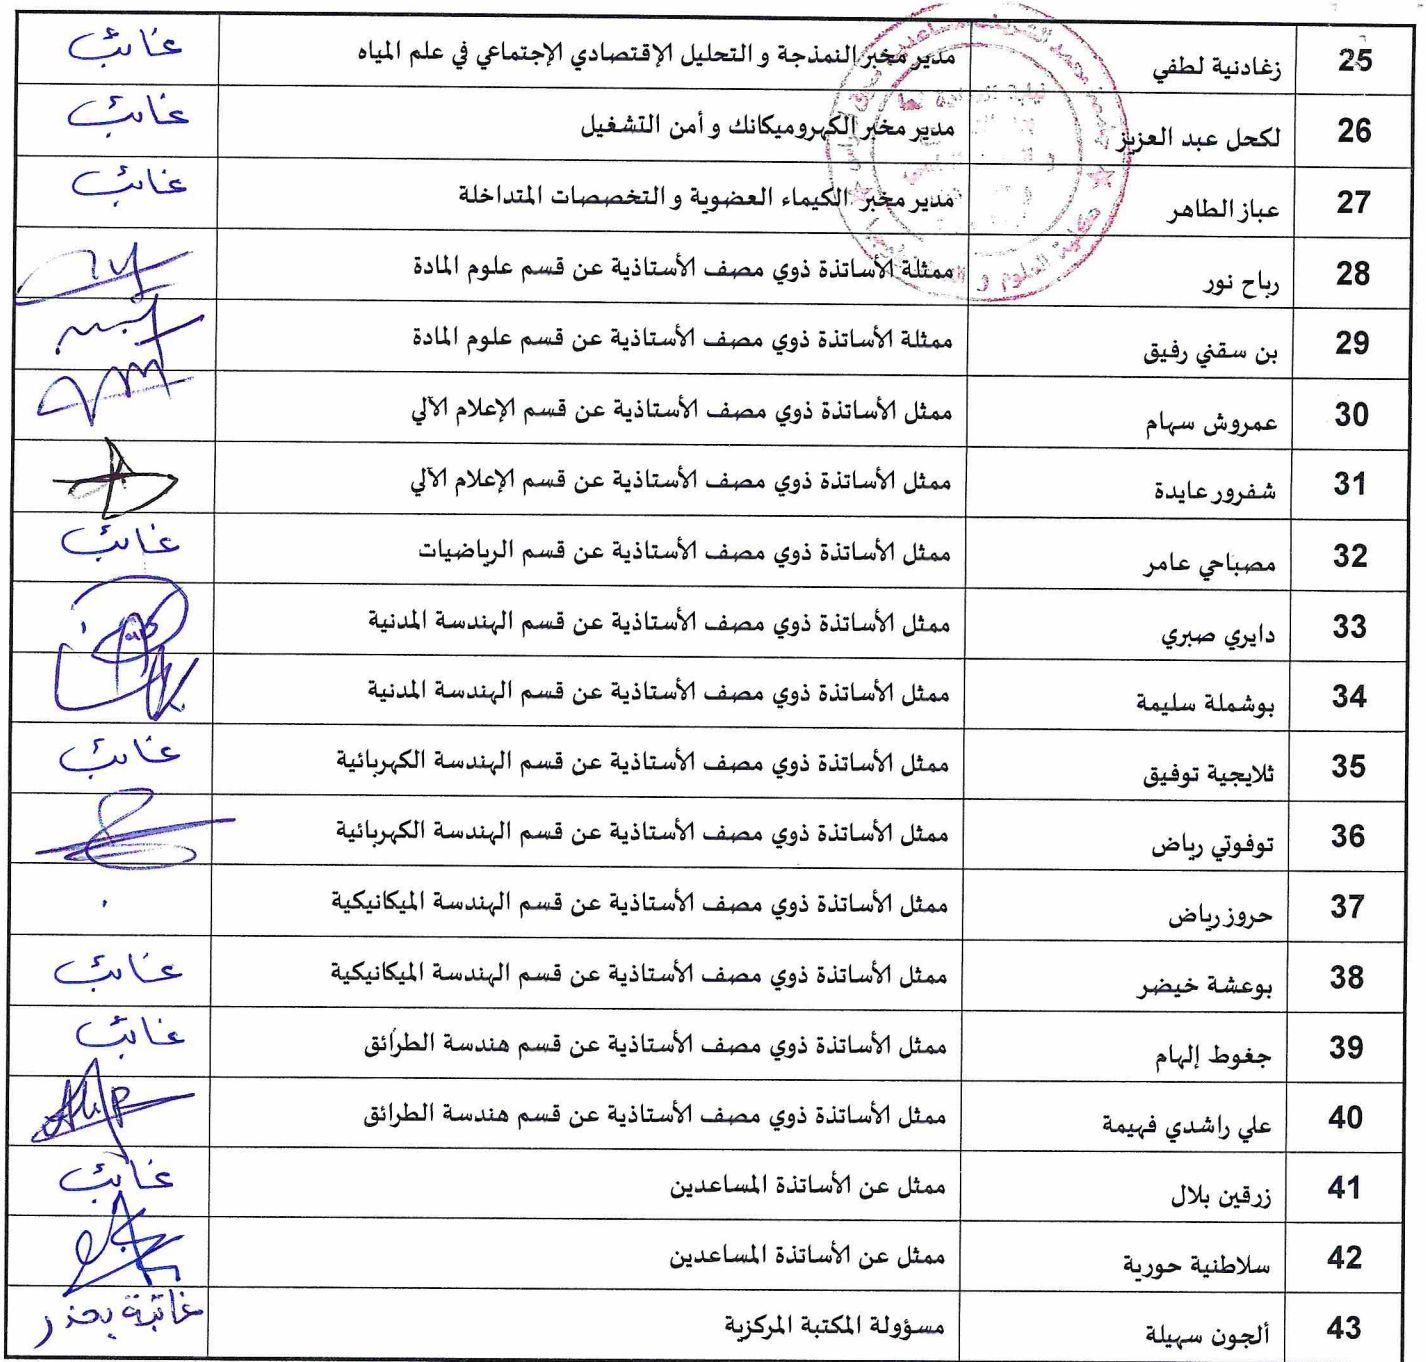 25 زغادنية لطفي مدير مخبر النمذجة و التحليل الإقتصادي الإجتماعي في علم المياه غائب
26 لكحل عبد العزيز مدير مخبر الكهروميكانك و أمن التشغيل غائب
27 عباز الطاهر مدير مخبر الكيماء العضوية و التخصصات المتداخلة غائب
28 رباح نور ممثلة الأساتذة ذوي مصف الأستاذية عن قسم علوم المادة
29 بن سقني رفيق ممثلة الأساتذة ذوي مصف الأستاذية عن قسم علوم المادة
30 عمروش سهام ممثل الأساتذة ذوي مصف الأستاذية عن قسم الإعلام الآلي
31 شفرور عايدة ممثل الأساتذة ذوي مصف الأستاذية عن قسم الإعلام الآلي
32 مصباحي عامر ممثل الأساتذة ذوي مصف الأستاذية عن قسم الرياضيات غائب
33 دايري صبري ممثل الأساتذة ذوي مصف الأستاذية عن قسم الهندسة المدنية
34 بوشملة سليمة ممثل الأساتذة ذوي مصف الأستاذية عن قسم الهندسة المدنية
35 ثلايجية توفيق ممثل الأساتذة ذوي مصف الأستاذية عن قسم الهندسة الكهربائية غائب
36 توفوتي رياض ممثل الأساتذة ذوي مصف الأستاذية عن قسم الهندسة الكهربائية
37 حروز رياض ممثل الأساتذة ذوي مصف الأستاذية عن قسم الهندسة الميكانيكية
38 بوعشة خيضر ممثل الأساتذة ذوي مصف الأستاذية عن قسم الهندسة الميكانيكية غائب
39 جغوط إلهام ممثل الأساتذة ذوي مصف الأستاذية عن قسم هندسة الطرائق غائب
40 علي راشدي فهيمة ممثل الأساتذة ذوي مصف الأستاذية عن قسم هندسة الطرائق
41 زرقين بلال ممثل عن الأساتذة المساعدين غائب
42 سلاطنية حورية ممثل عن الأساتذة المساعدين
43 ألجون سهيلة مسؤولة المكتبة المركزية غائبة بعذر